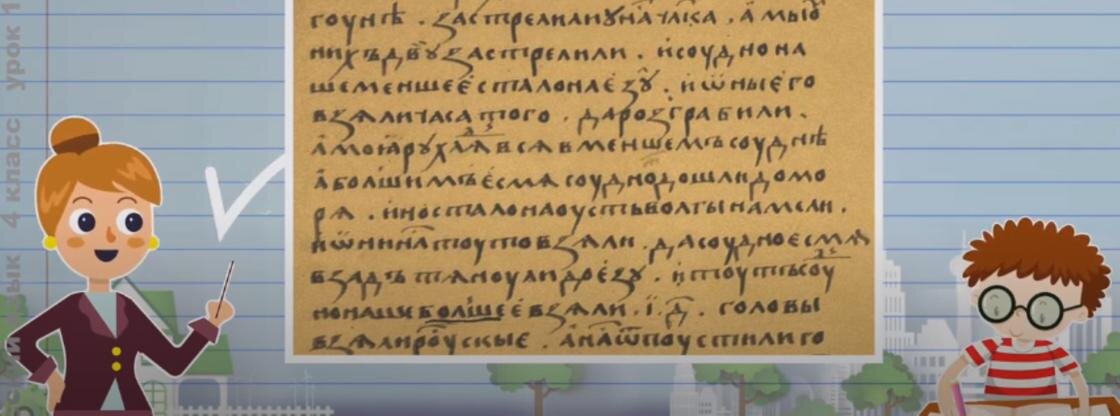 гоунѣ . застрелилиꙋначл͠ка , а мы ѹ
нихъ двꙋ застрелили . и соудно на
ше меншее стало на езꙋ . и ѡны его
взѧли часа того . да розграбили .
а моꙗ рꙋхлѧдь всѧ в меншемъ соуднѣ
а болшимъ есмѧ соудно дошли до мо
рѧ . ино стало на оусть волгы на мели .
и ѡни на тоуто взѧли . да соудно есмѧ
взадъ тѧноули до езꙋ . и тоутъ соу
но наше болшее взѧли . і . д . головы
взѧли роускые . а на ѿпоустили го
язык 4 класс урок 1